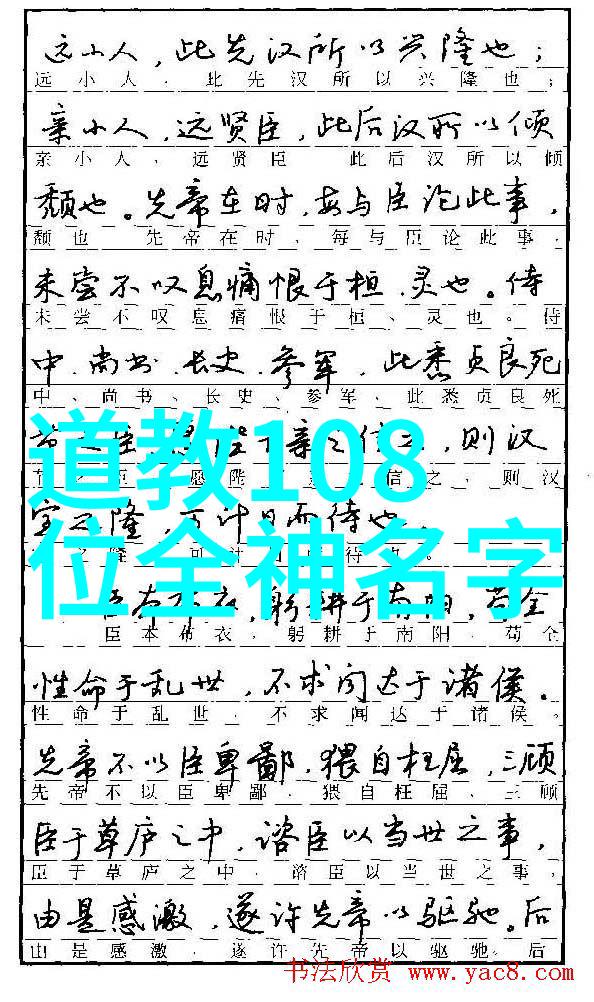 远小人，此先汉所以兴隆也；
远小人，此先汉所以兴隆也；
亲小人，远贤臣，此后汉所以倾
亲小人，远贤臣 此后汉所以倾
颓也。先帝在时，每与臣论此事，
颓也 先帝在时，每与臣论此事，
未尝不叹息痛恨于桓、灵也。侍
未尝不叹息痛恨于桓、灵也。侍
中、尚书、长史、参军，此悉贞良死
中、尚书、长史、参军、此悉贞良死
道教108
亲之信之，则汉
愿陛 信之，则汉
位全神名字
室之隆，可计日而待也。
之隆 可计 待也
臣本布衣，躬耕于南阳，苟全
臣本布衣，躬耕于南阳，苟全
性命于乱世，不求闻达于诸侯。
性命于乱世，不求闻达于诸侯。
先帝不以臣卑鄙，猥自枉屈，三顾
先帝不以臣卑鄙，猥自枉屈、三顾
臣于草庐之中，谘臣以当世之事，
臣于草庐之中，谘臣以当世之事，
由是感激，遂许先帝以驱驰。后
由是感激，遂许先帝以驱驰。后
书法欣赏 www.yac8.com